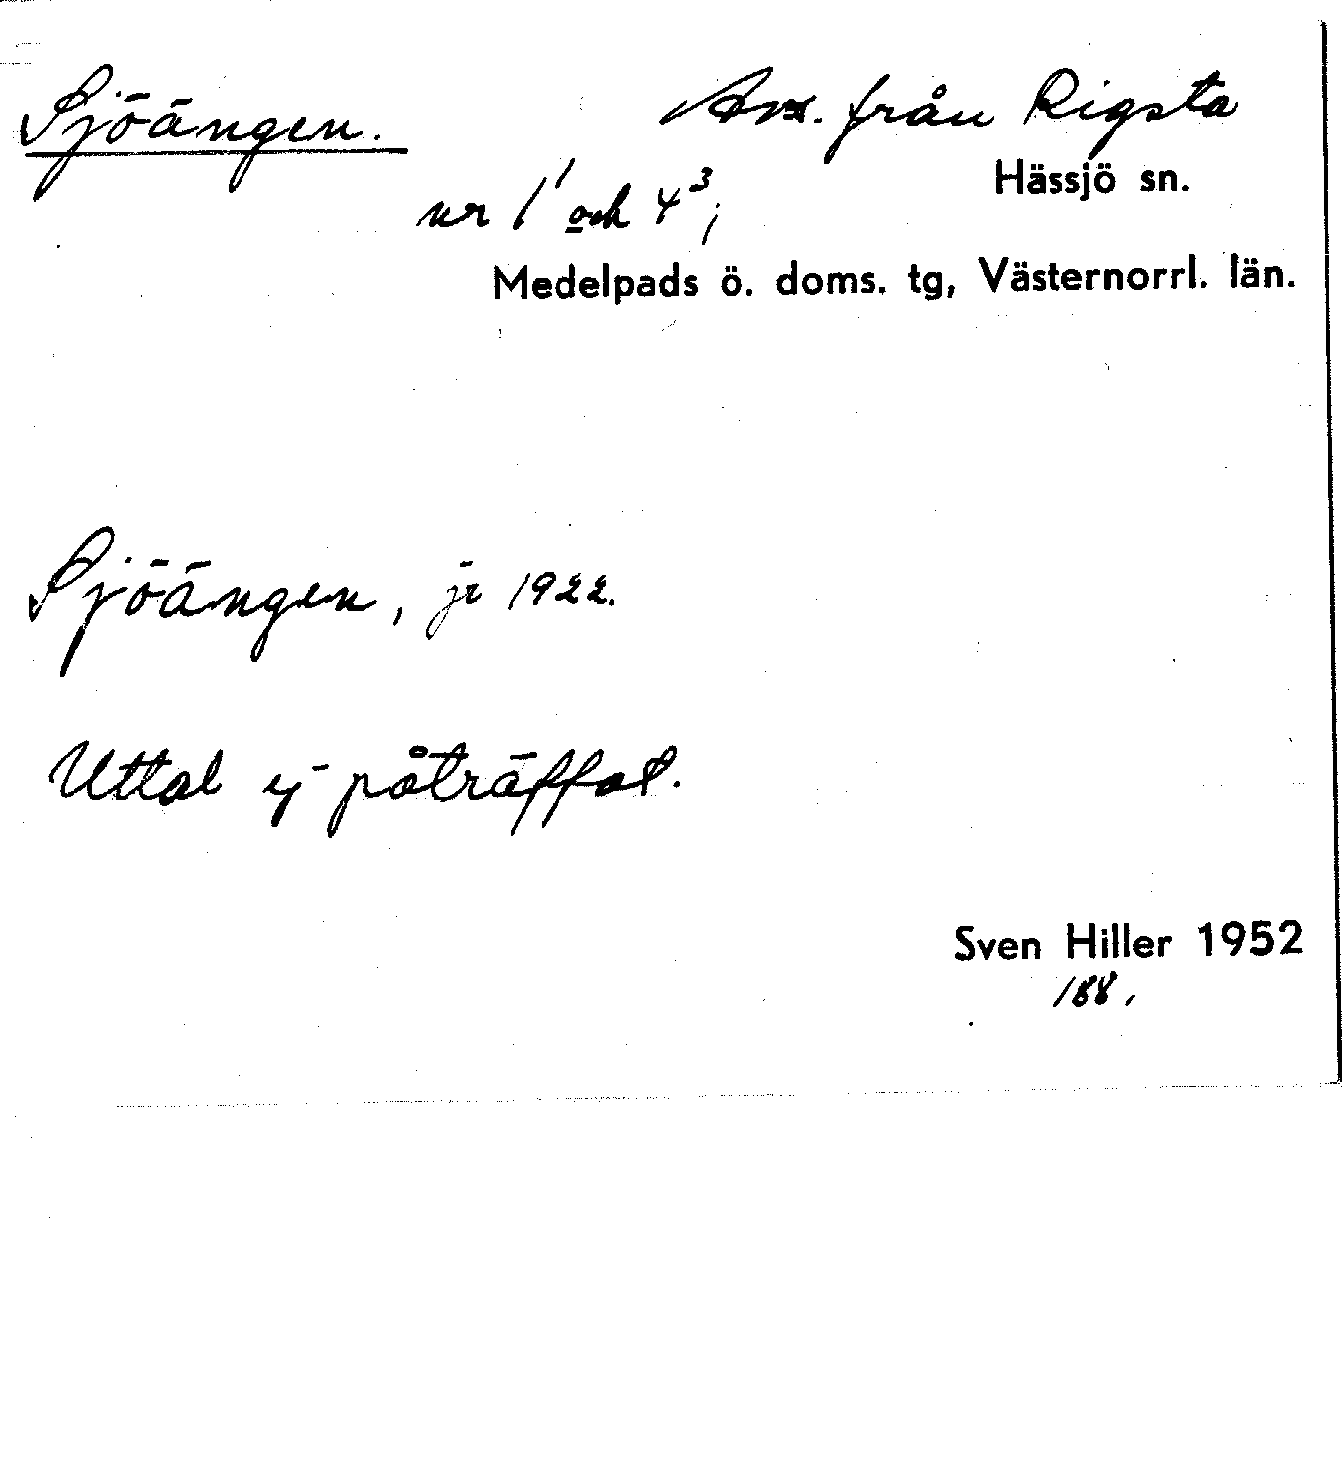 Sjöängen.
Avs. från Rigsta
Hässjö sn.
nr 1¹ och 4³;
Medelpads ö. doms. tg, Västernorrl. län.
Sjöängen, jr 1922.
Uttal ej påträffat.
Sven Hiller 1952
188.